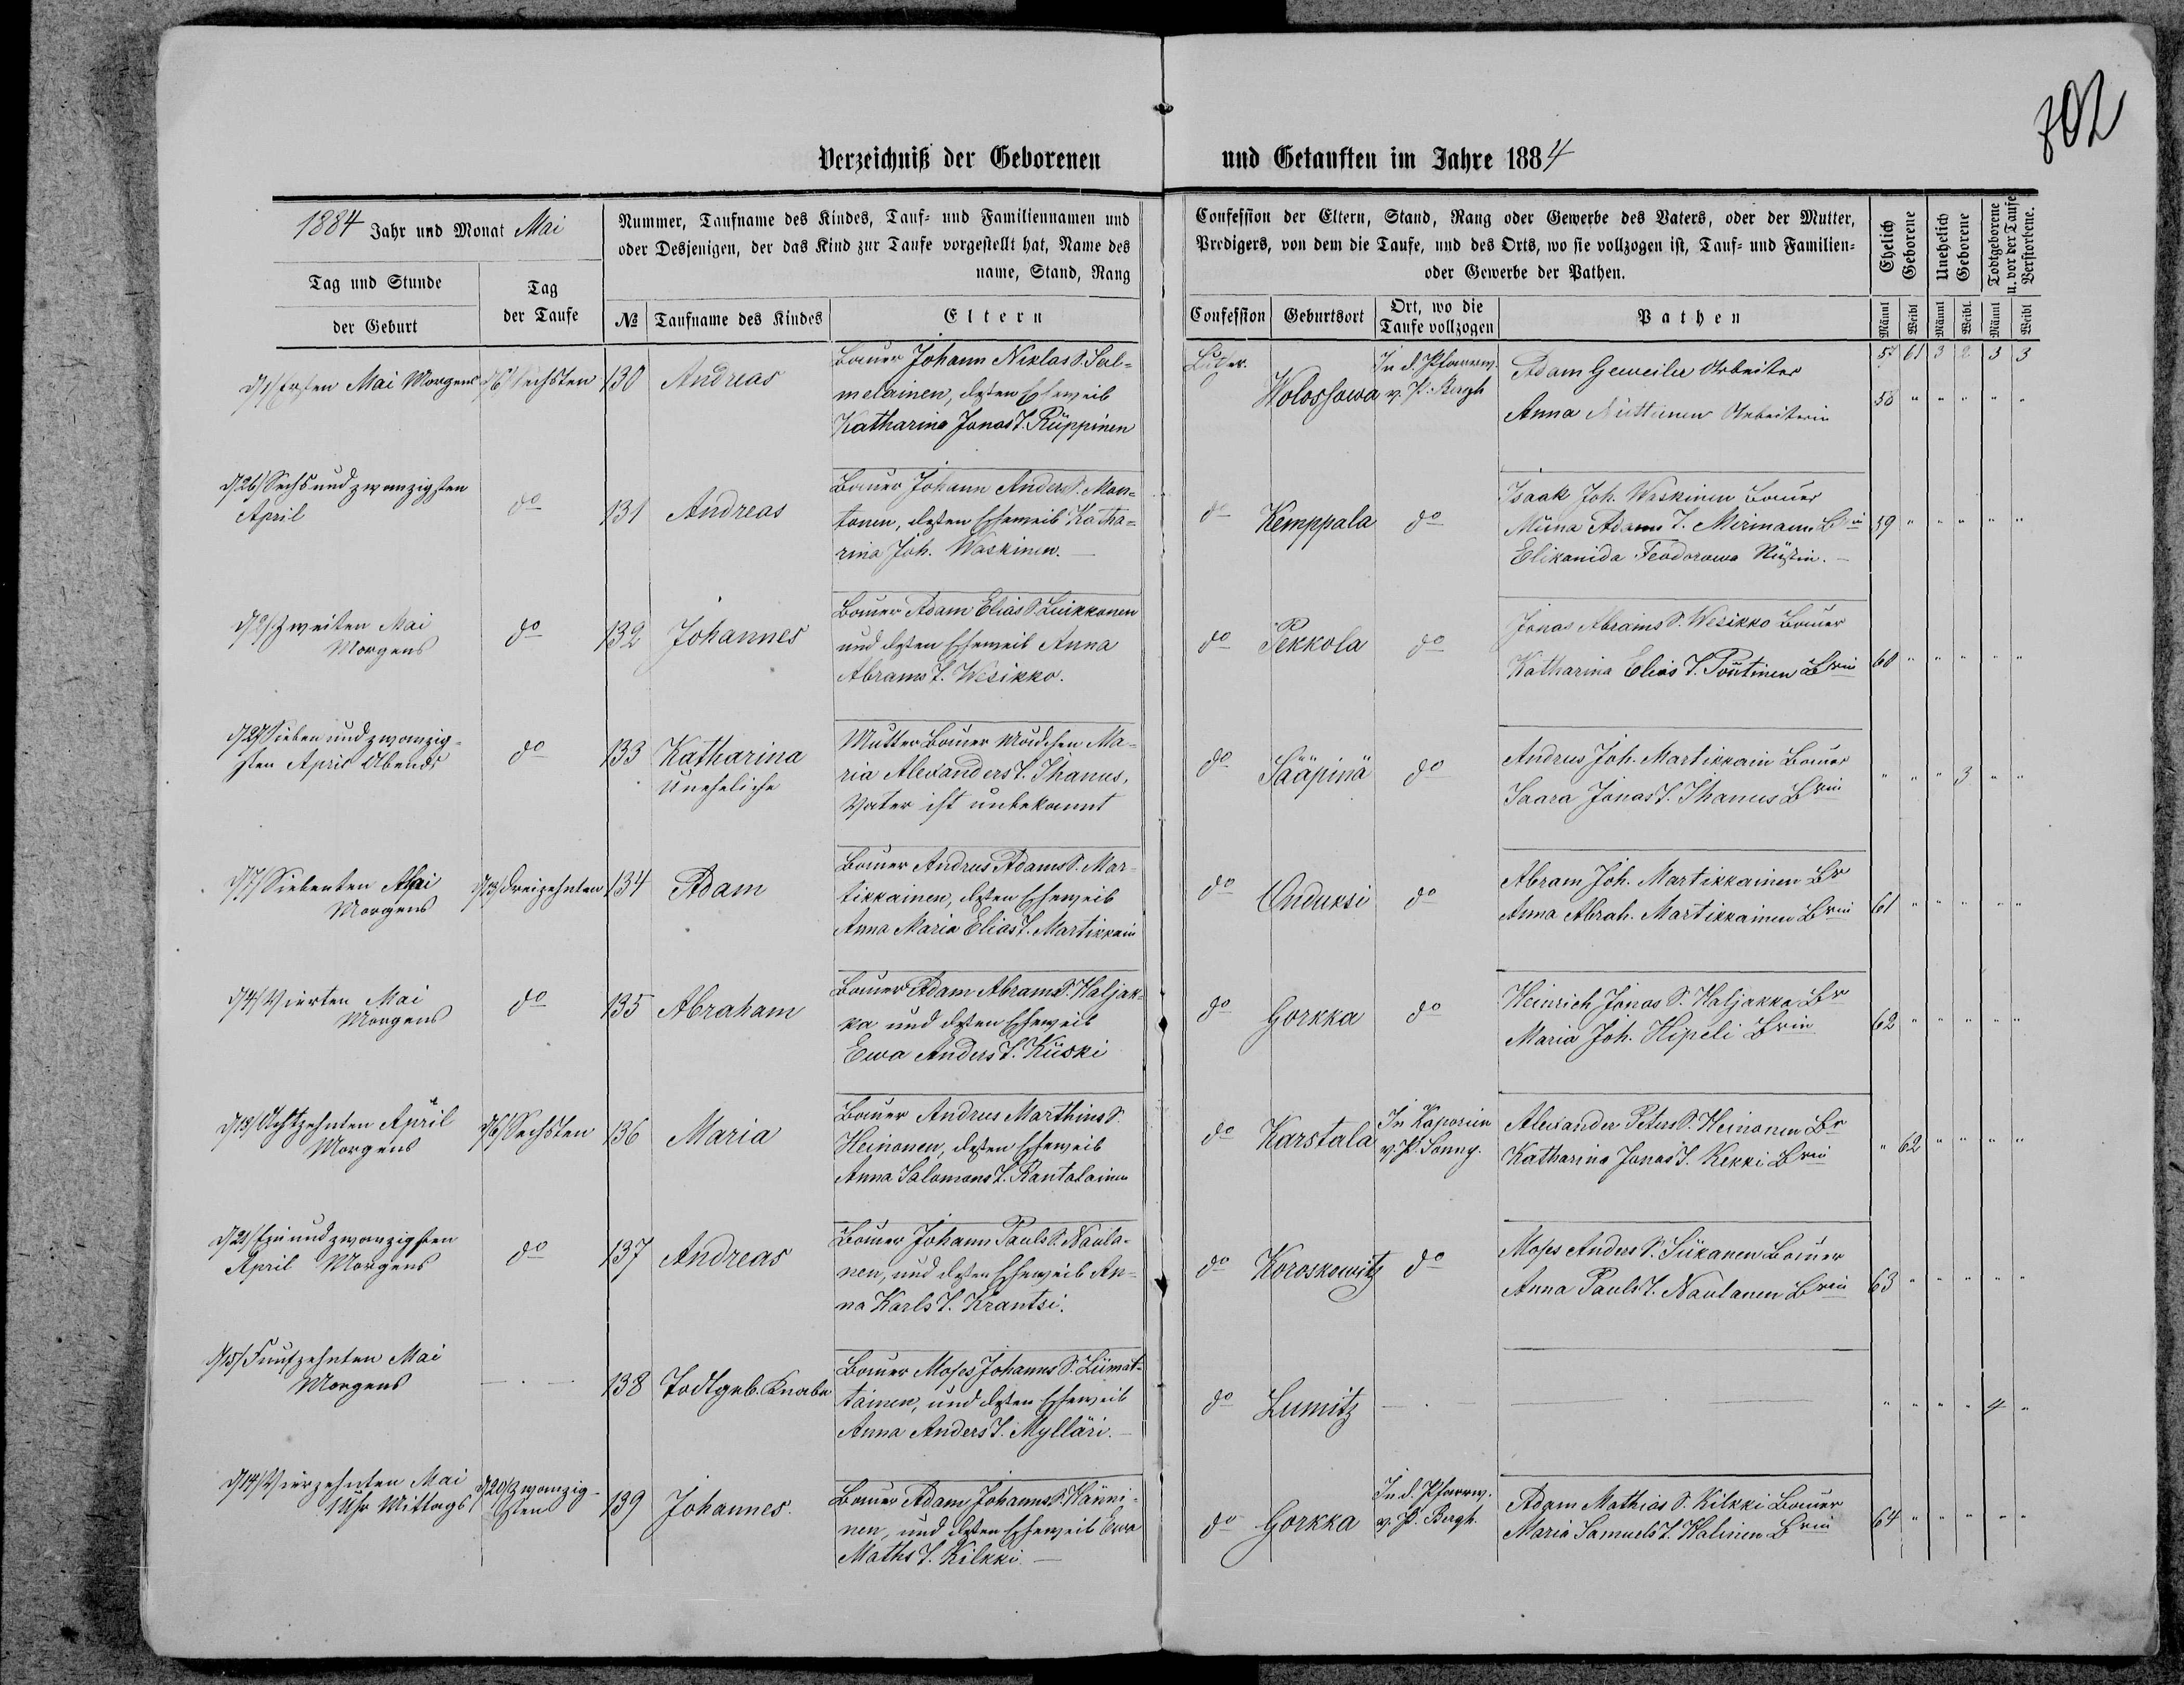 702
Verzeichniß der Geborenen und Getauften im Jahre 1884
1884 Jahr und Monat Mai
Tag und Stunde
der Geburt
Tag
der Taufe
Nummer, Taufname des Kindes, Tauf- und Familiennamen und
oder Desjenigen, der das Kind zur Taufe vorgestellt hat, Name des
name, Stand, Rang
№ Taufname des Kindes Eltern
Confession der Eltern, Stand, Rang oder Gewerbe des Vaters, oder der Mutter,
Predigers, von dem die Taufe, und des Orts, wo sie vollzogen ist, Tauf- und Familien-
oder Gewerbe der Pathen.
Confession Geburtsort
Ort, wo die
Taufe vollzogen
Pathen
Ehelich
Geborene
Unehelich
Geborene
Todtgeborene
u. vor der Taufe
Verstorbene.
Männl Weibl Männl Weibl Männl Weibl
57 61 3 2 3 3
d/1/ Ersten Mai Morgens
d/6/ Sechsten
130 Andreas
Bauer Johann Niklas S. Sal-
melainen, dessen Eheweib
Katharina Jonas T. Rüppinen
Luther.
Wolossowa
In d. Pfarrw.
v. P. Bergh
Adam Geweiler Arbeiter
Anna Nüttünen Arbeiterin
58 " " " " "
d/26/ Sechsundzwanzigsten
April
do
131 Andreas
Bauer Johann Anders S. Mon-
tonen, dessen Eheweib Katha-
rina Joh. Waskinen.
do Kemppala do
Isaak Joh. Waskinen Bauer
Miina Adams T. Mirmann Brin
Elikanida Feodorowa
59 " " " " "
d/2/ Zweiten Mai
Morgens
do
132 Johannes
Bauer Adam Elias S. Luikkonen
und dessen Eheweib Anna
Abrams T. Wesikko.
do Pekkola do
Jonas Abrams S. Wesikko Bauer
Katharina Elias T. Poutinen Brin
60 " " " " "
d/27/ Sieben und zwanzig-
sten April Abends
do
133 Katharina
Uneheliche
Mutter Bauer Mädchen Ma-
ria Alexanders T. Ihanus,
Vater ist unbekannt
do Sääpinä do
Andrus Joh. Martikkain Bauer
Saara Jonas T. Ihanus Brin
" " " 3 " "
d/7/ Siebenten Mai
Morgens
d/13/ Dreizehnten
134 Adam
Bauer Andrus Adams S. Mar-
tikkainen, dessen Eheweib
Anna Maria Elias T. Martikkain
do Onduksi do
Abram Joh. Martikkainen Br
Anna Abrah. Martikkainen Brin
61 " " " " "
d/4/ Vierten Mai
Morgens
do
135 Abraham
Bauer Adam Abrams S. Haljak-
ka und dessen Eheweib
Ewa Anders T. Kiiski
do Gorkka do
Heinrich Jonas S. Haljakka Br
Maria Joh. Hipeli Brin
62 " " " " "
d/18/ Achtzehnten April
Morgens
d/6/ Sechsten
136 Maria
Bauer Andrus Marthins S.
Heinonen, dessen Eheweib
Anna Salomons T. Rantalainen
do Karstala
In Kaporien
v. P. Sonny.
Alexander Peters S. Heinonen Br
Katharina Jonas T. Kekki Brin
" 62 " " " "
d/21/ Ein und zwanzigsten
April Morgens
do
137 Andreas
Bauer Johann Pauls S. Naula-
nen, und dessen Eheweib An-
na Karls T. Krantsi.
do Koroskowitz do
Moses Anders S. Siikanen Bauer
Anna Pauls T. Naulanen Brin
63 " " " " "
d/15/ Funfzehnten Mai
Morgens
138 Todtgeb. Knabe
Bauer Moses Johanns S. Liimat-
tainen, und dessen Eheweib
Anna Anders T. Mylläri.
do Lumitz
" " " " 4 "
d/14/ Vierzehnten Mai
1 Uhr Mittags
d/20/ Zwanzig-
sten
139 Johannes.
Bauer Adam Johanns S. Hänni-
nen, und dessen Eheweib Ewa
Maths T. Kilkki.
do Gorkka
In d. Pfarrw.
v. P. Bergh.
Adam Mathias S. Kilkki Bauer
Maria Samuels T. Halinen Brin
64 " " " " "